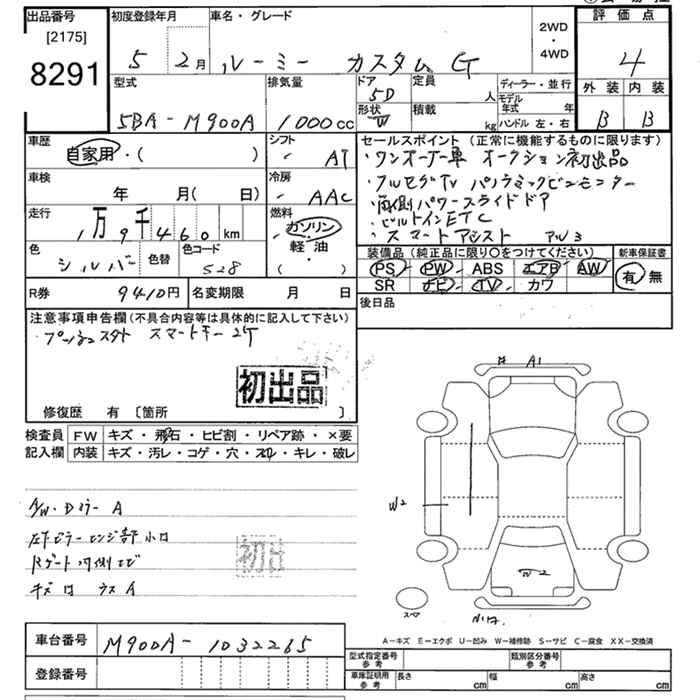 出品番号 初度登録年月 車名・グレード 2WD・4WD 評価点
[2175]
8291 5 2月 ルーミー カスタムG 4
型式 排気量 ドア 定員 ディーラー・並行 外装 内装
5D 人 モデル年式 年
形状 積載
5BA-M900A 1000cc W kg ハンドル 左・右 B B
車歴 シフト セールスポイント (正常に機能するものに限ります)
自家用・( ) AT ・ワンオーナー車 オークション初出品
車検 冷房 ・フルセグTV パノラミックビューモニター
年 月( 日) AAC ・両側パワースライドドア
走行 燃料 ・ビルトインETC
1万9千460km ガソリン ・スマートアシスト アルミ
軽・油
色 色替 色コード 装備品(純正品に限り○をつけてください) 新車保証書
シルバー S28 ( ) PS PW ABS エアB AW 有・無
SR ナビ TV カワ
R券 9410円 名変期限 月 日 後日品
注意事項申告欄(不具合内容等は具体的に記入して下さい)
プッシュスタート スマートキー2ケ
初出品
修復歴 有 〔箇所 〕
検査員 FW キズ・飛石・ヒビ割・リペア跡・×要
記入欄 内装 キズ・汚レ・コゲ・穴・スレ・キレ・破レ
A1
A/W・Dミラー A
W2
初出
W2
キズ 凹 ウス A
スペア
A-キズ E-エクボ U-凹み W-補修跡 S-サビ C-腐食 XX-交換済
車台番号 M900A-1032265
型式指定番号 参考 類別区分番号 参考
登録番号 車庫証明用 参考 長さ cm 幅 cm 高さ cm